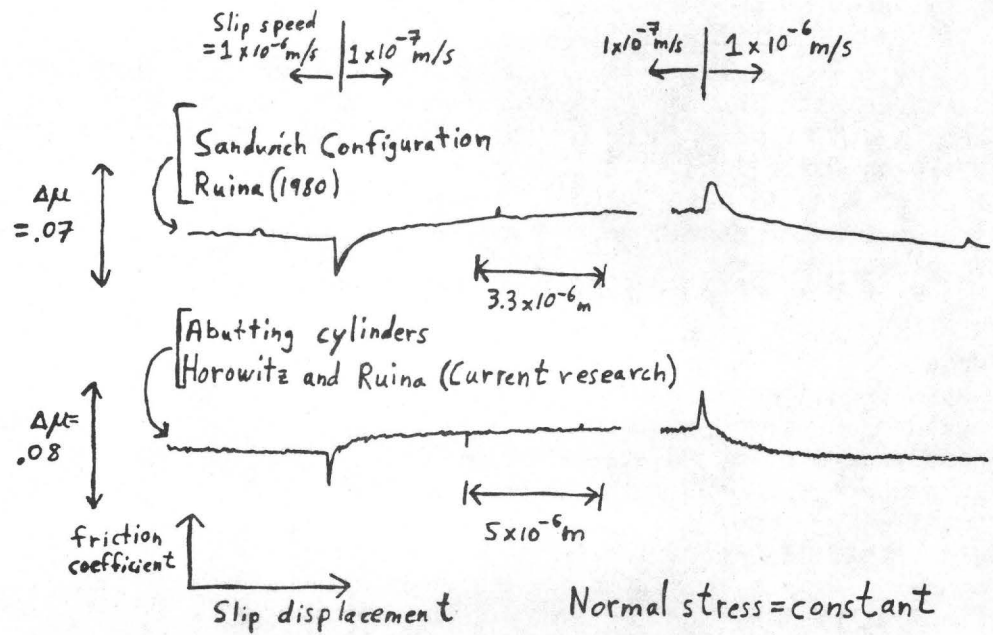 Slip speed
= 1 x 10⁻⁶ m/s
1 x 10⁻⁷ m/s
1x10⁻⁷ m/s
1 x 10⁻⁶ m/s
Sandwich Configuration
Ruina (1980)
Δμ
= .07
3.3x10⁻⁶ m
Abutting cylinders
Horowitz and Ruina (Current research)
Δμ=
.08
5x10⁻⁶m
friction
coefficient
Slip displacement
Normal stress = constant